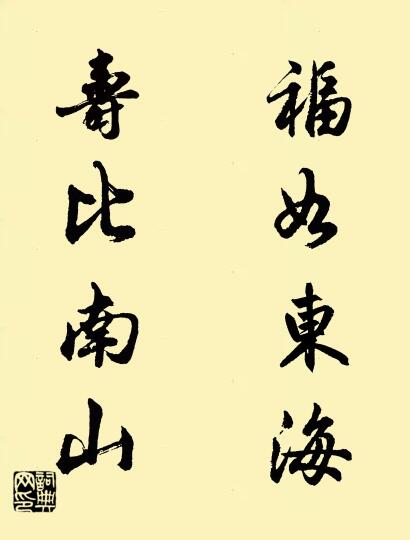 福如東海
壽比南山
詞典网印